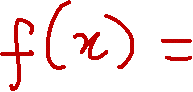 f(x) =